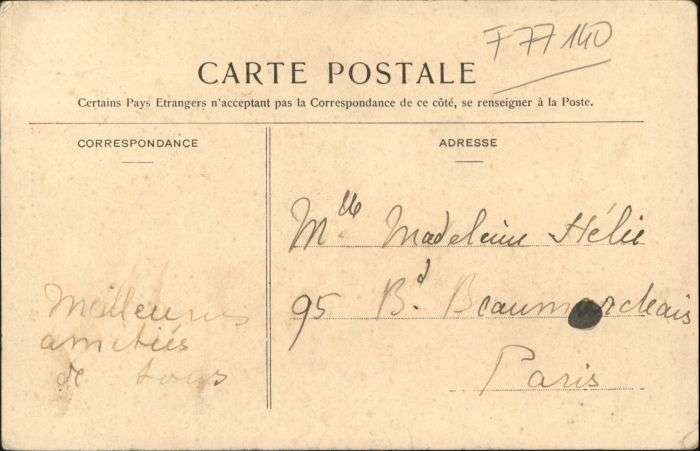 F 77 140
CARTE POSTALE
Certains Pays Etrangers n'acceptant pas la Correspondance de ce côté, se renseigner à la Poste.
CORRESPONDANCE
Meilleures
amitiés
de tous
ADRESSE
Mlle Madeleine Hélie
95 Bd. Beaumarchais
Paris